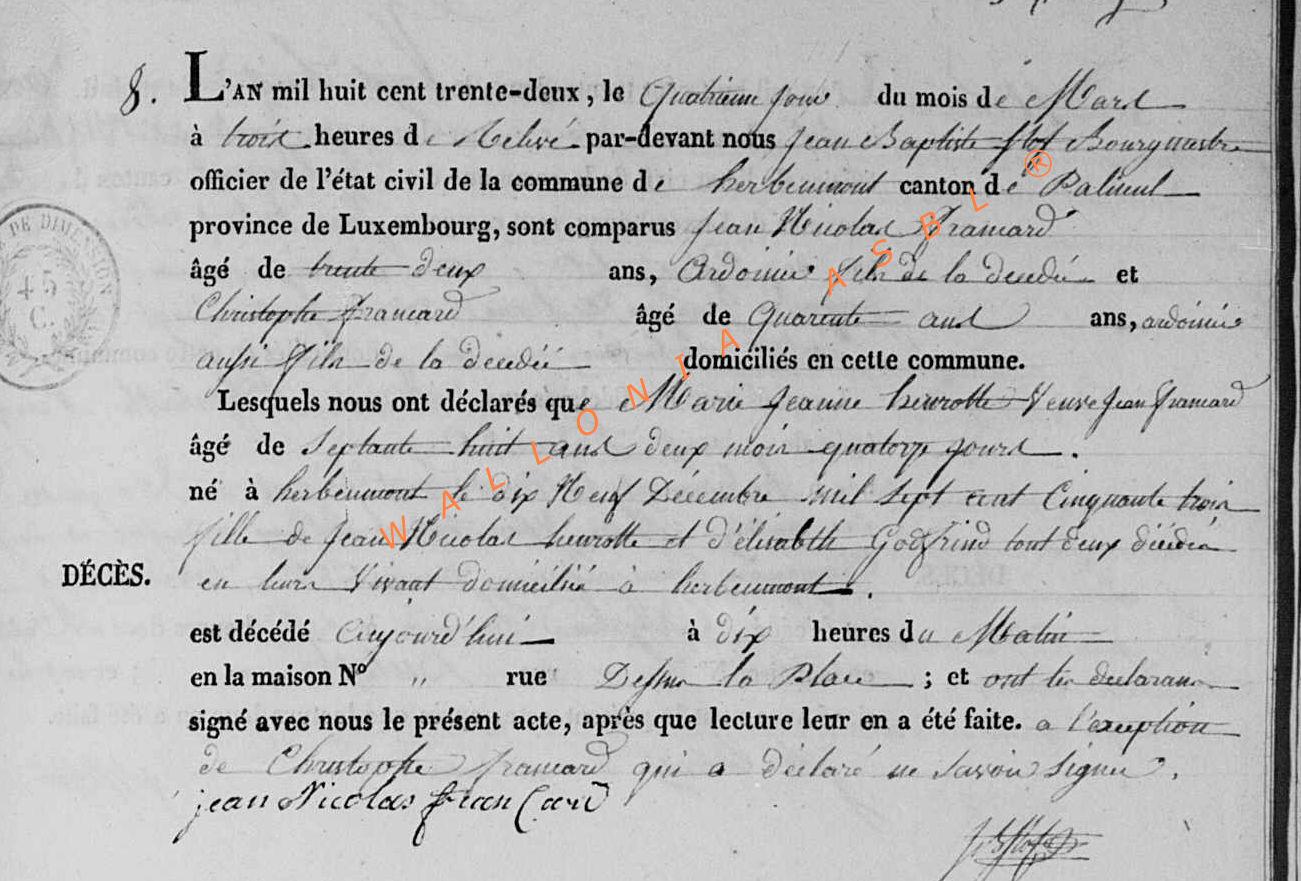 8. L'AN mil huit cent trente-deux, le Quatrieme jour du mois de Mars
à trois heures de Relevé par-devant nous Jean Baptiste flot Bourgmestre
officier de l'état civil de la commune de herbeumont canton de Paliseul
province de Luxembourg, sont comparus Jean Nicolas Francard
âgé de trente deux ans, Ardoisier fils de la décédée et
Christophe Francard âgé de Quarente ans ans, ardoisier
aussi fils de la décédée domiciliés en cette commune.
Lesquels nous ont déclarés que Marie Jeanne heurotte Veuve Jean Francard
âgé de Septante huit ans deux mois quatorze jours.
né à herbeumont le dix Neuf Décembre mil Sept cent Cinquante trois
fille de Jean Nicolas heurotte et d'élisabeth Godfrind tout deux décédés
DÉCÈS. en leurs Vivant domiciliés à herbeumont.
est décédé Aujourd'hui à dix heures du Matin
en la maison Nº " rue Dessus la Place ; et ont les declarans
signé avec nous le présent acte, après que lecture leur en a été faite. a l'exception
de Christophe francard qui a déclaré ne Savoir Signer.
jean Nicolas franCard
45
C.
WALLONIA ASBL ®